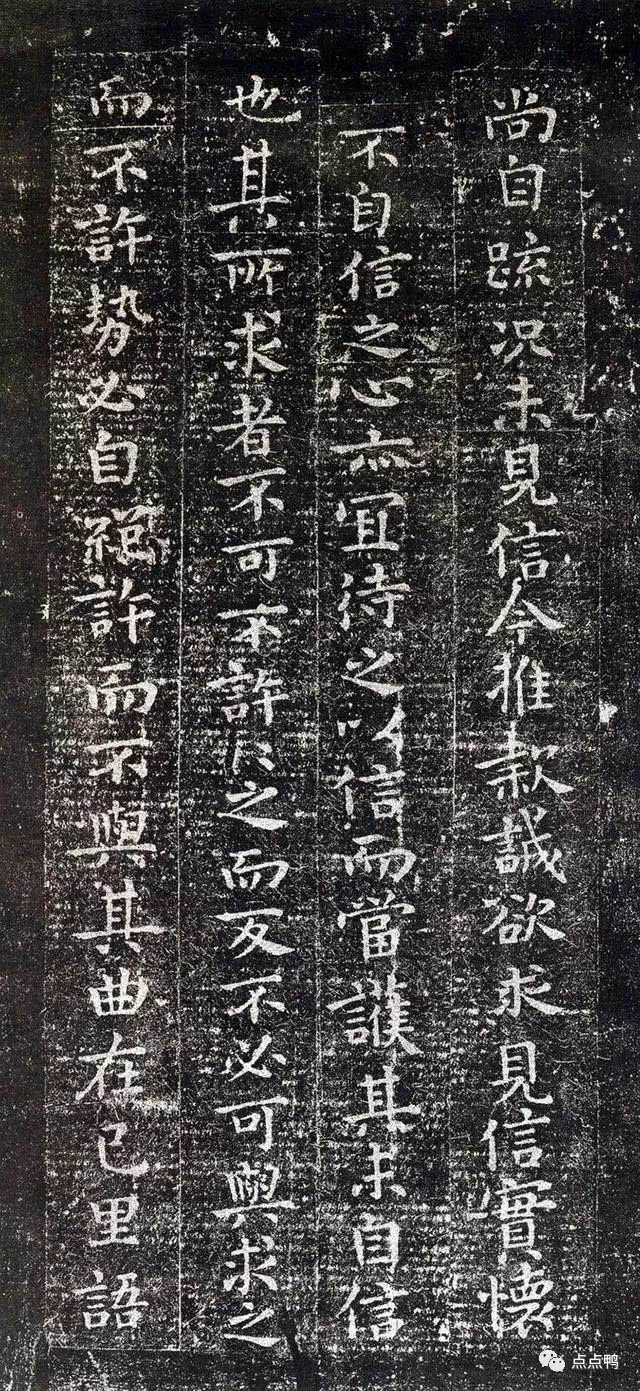 尚自疏况未見信今推款誠欲求見信實懷
不自信之心亦宜待之以信而當護其未自信
也其所求者不可不許許之而反不必可與求之
而不許勢必自絕許而不與其曲在己里語
点点鸭